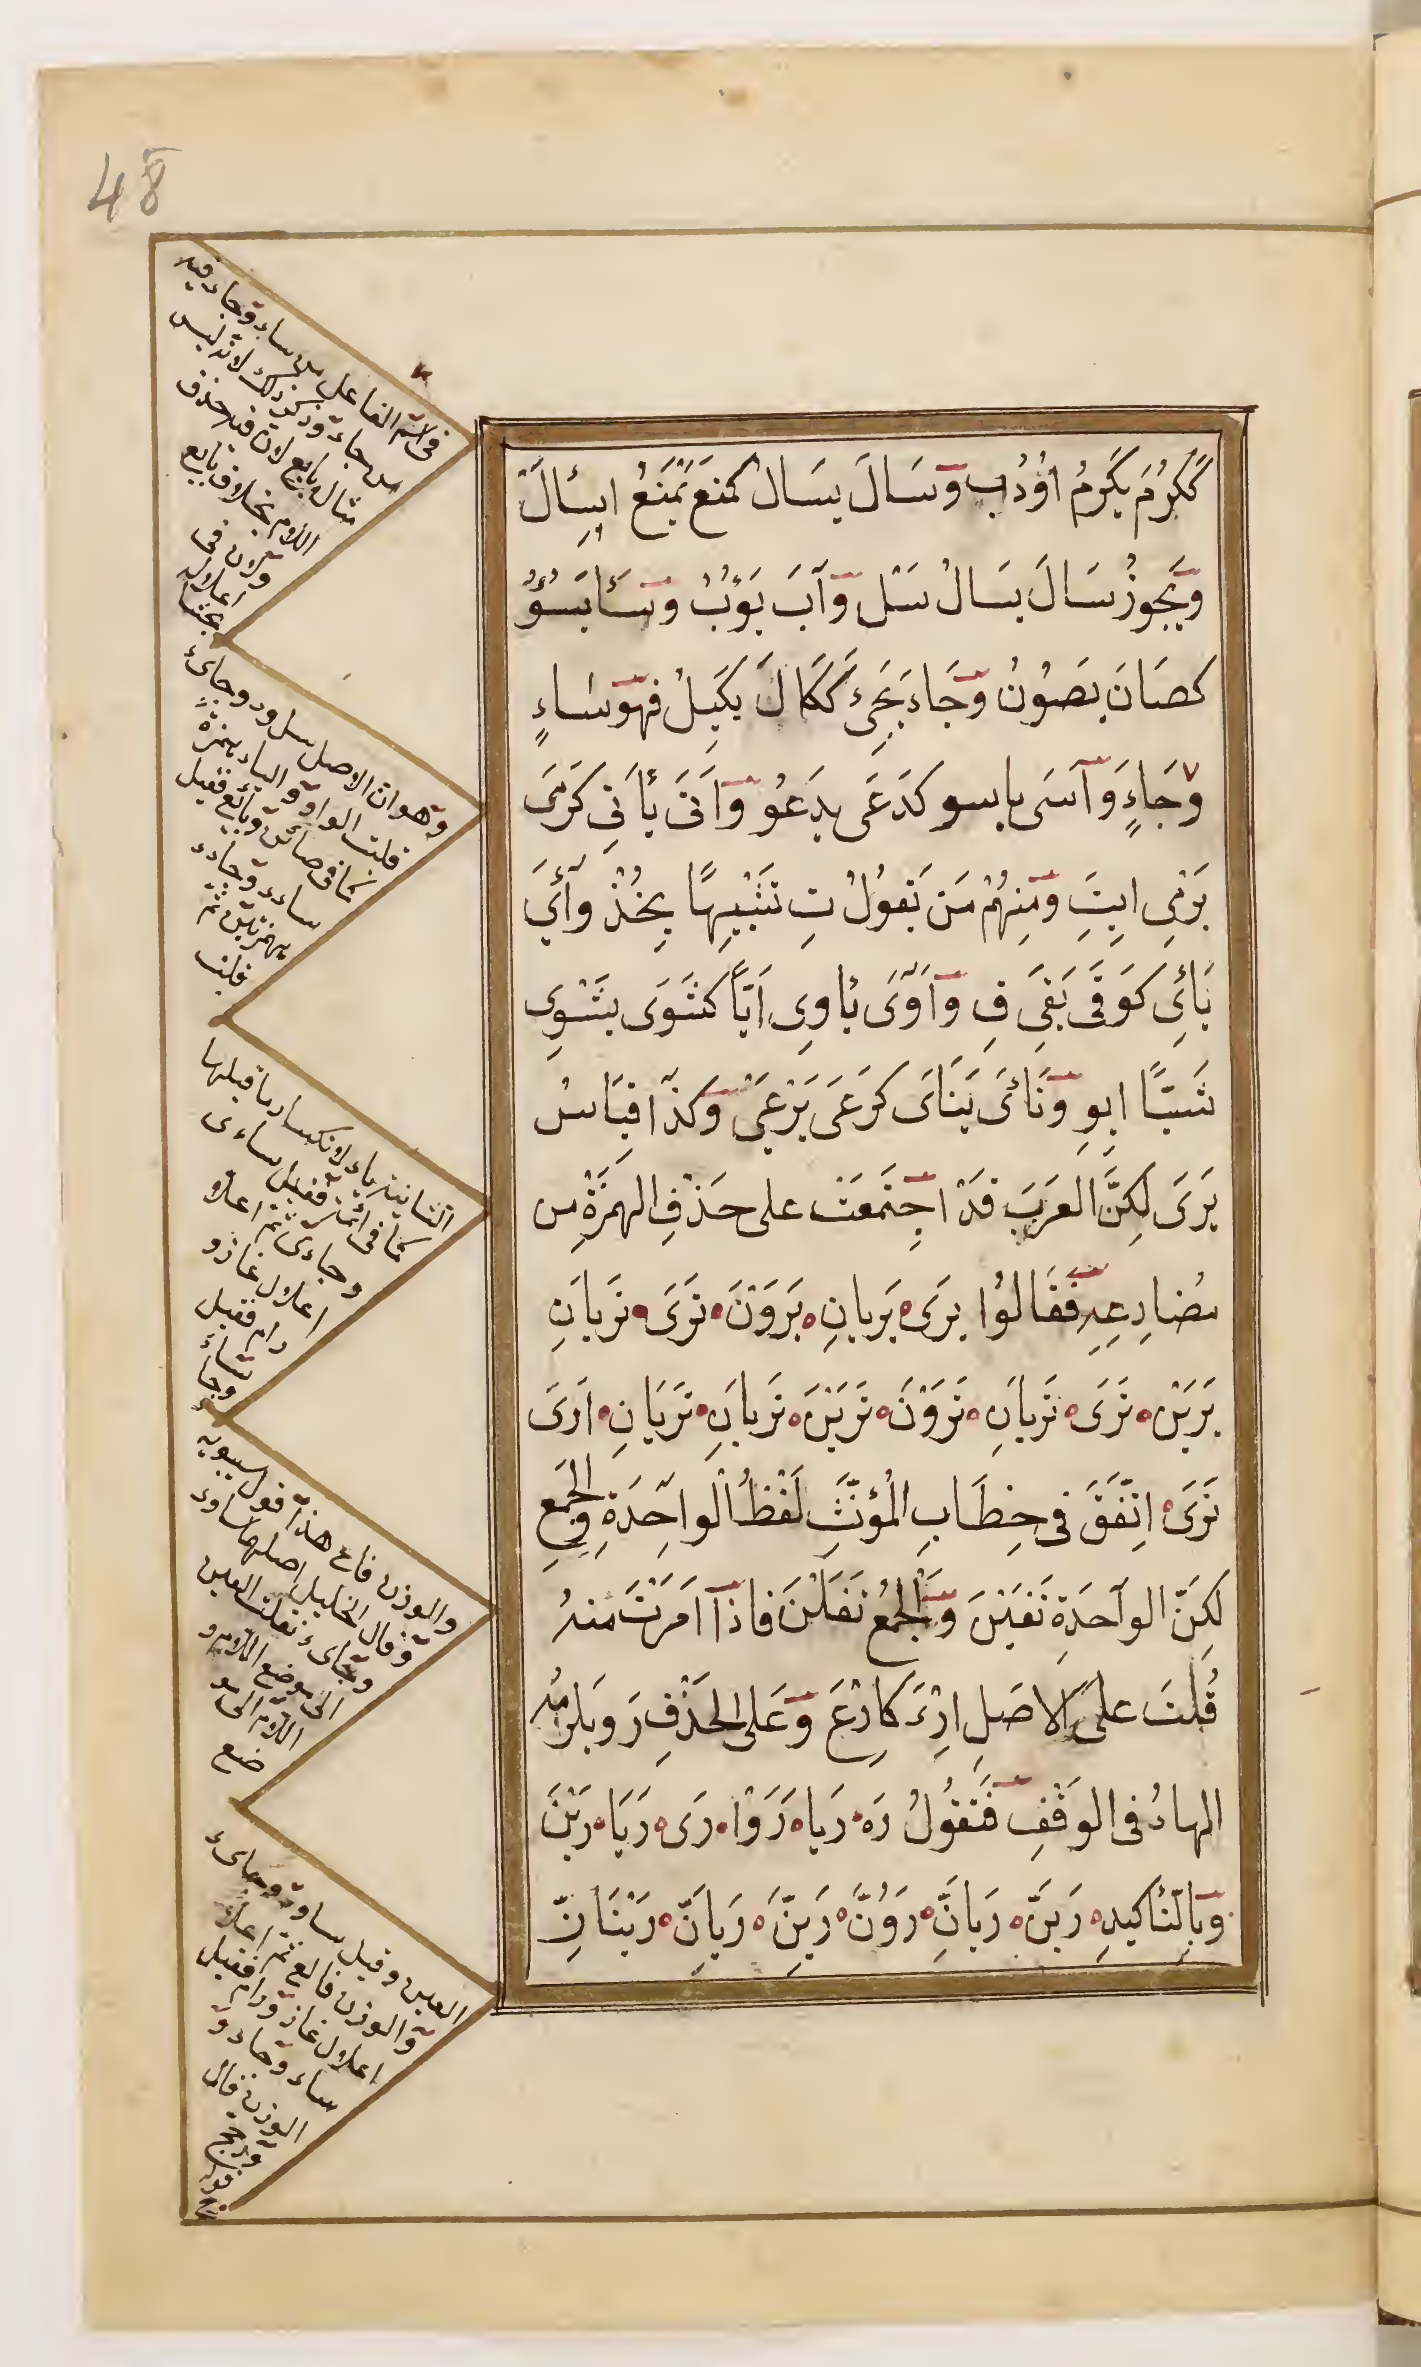 كَكَرُمَ يَكْرُمُ اُوْدُب وَسَالَ يسَال كَمَنَعَ يَمْنَعُ اسِئالْ
وَيَجوزُ سَالَ يسَالُ سَلْ وَآبَ يَؤبُ وَسَأيَسُوُ
كصَانَ يصَوُنُ وَجَاءَ يَجِئُ كَكَالَ يَكيِلُ فهوَ سَاءٍ
وَجَاءٍ وَآسَى ياسو كدَعَى يدَعُو وَاَتَى يأتِى كَرَمَى
يَرْمِى ايتِ وَمنِهُمْ مَن يَقولُ تِ تشَبْيِهًا بِخُذْ وَأَىَ
يَأئِ كوَقَى يَقىِ قِ وَاَوَى يأوِى اَيَّا كشَوَى يشَوِى
شَيّاً ايوِ وَنَأىَ يَنَأىَ كرَعَى يَرْعىَ وَكذَا قيَاسُ
يرَىَ لكِنَّ العَرَبَ قدَْ اجتَمَعَتْ على حَذْفِ الهَمزَةِ مِن
مضُارِعِهِ فقَالوُا يرَىَ يَرَيانِ يَرَوْنَ تَرَىَ تَرَيانِ
يَرَيْن تَرَىَ تَرَيانِ تَرَوْنَ تَرَيْنَ تَرَيانِ تَرَيَانِ اَرَىَ
نَرَىَ اتِّفَقَ فى خِطَابِ الْمُؤنَّثِ لَفْظُ الْواحِدَةِ وَالجَمعِ
لكِنّ الواحَدةِ تَفَيْنَ وَالجَمْعُ تَفَلْنَ فاذاَ اَمَرْتَ منهُ
قُلتَ علىَ الاصَلِ ارِْءَ كاِرْعَ وَعَلى الحَذْفِ رَ ويلزمُه
الهاءُ فى الوَقْفِ فَتَقوُلُ رَه رَيا رَوْا رَى رَيَا رَيْنَ
وَبالِتأكيدِ رَيَنَّ رَيانِّ رَوُنَّ رَيِنَّ رَيانِّ رَيْنَانِّ
فى اسم الفاعل من ساء وَجاء فيه
من جاء وَذكر ذلك لانه ليس
مثال بايع لان فيه حذف
اللام بخلاف بايع
اعلال
وَهو ان الاصل ساود وجايء
قلبت الواو وَالياء همزة
كما فى صائن وَبائع فقيل
ساءء وَجاءء
بهمزتين ثم
قلبت
الثانية ياء لانكسار ما قبلها
كما فى ائمة فقيل ساءى
وجاءى ثم اعلا
اعلال غاز و
رام فقيل
ساء
وجاء
والوزن فاع هذا قول سيبويه
وَقال الخليل اصلها ساوء
وَجاىء نقلت العين
الى موضع اللام و
اللام الى مو
ضع
العين وقيل ساو وَجاىء
وَالوزن فالع ثم اعلا
اعلال غاز وَرام فقيل
ساء وَجاء و
الوزن فال
48